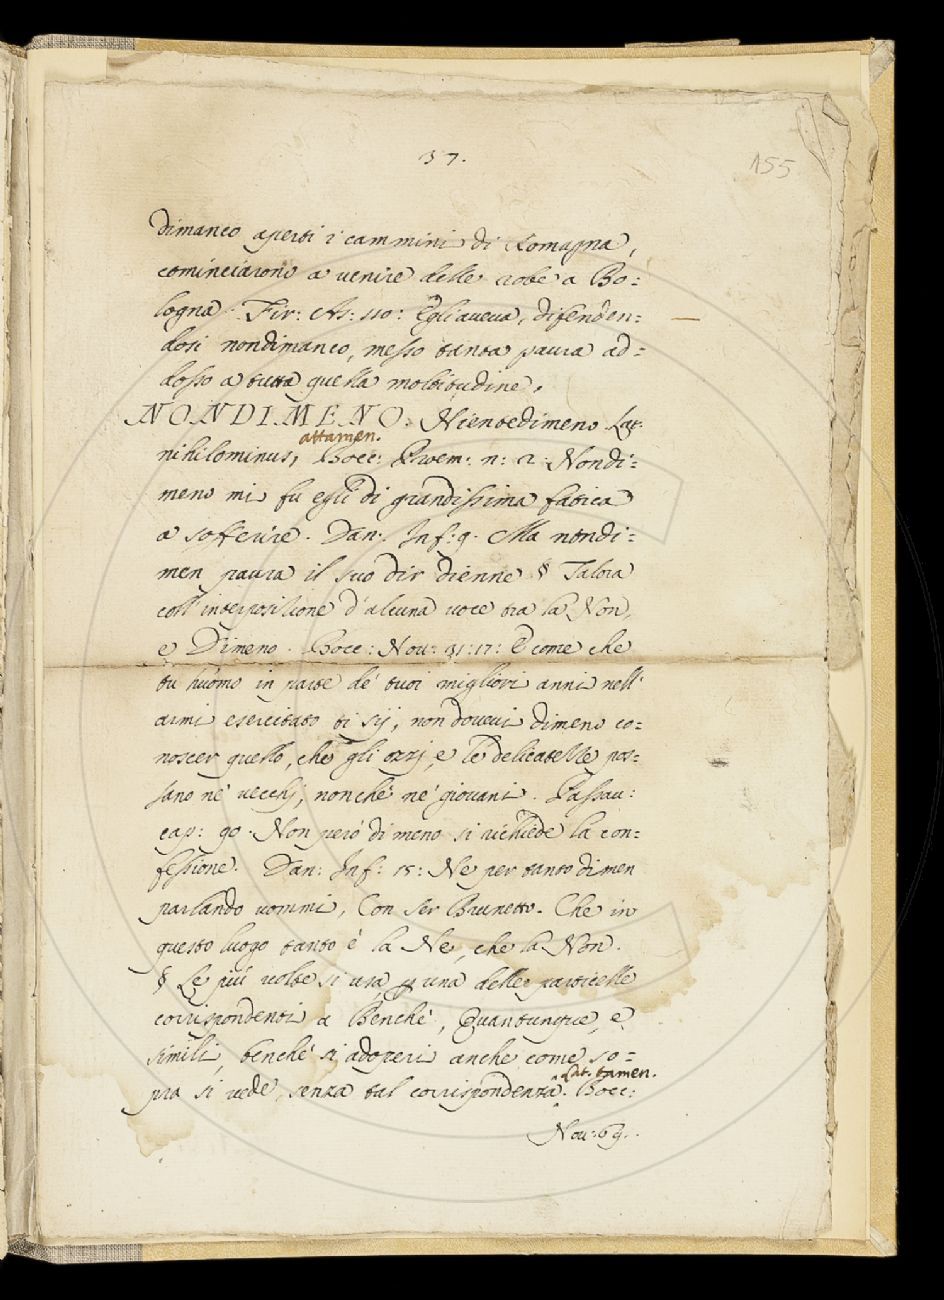 37.
155
dimanco aperti i cammini di Romagna,
cominciarono a venire delle robe a Bo=
logna. Fir: As: 110: Egli aveva, difenden=
dosi nondimanco, messo tanta paura ad=
dosso a tutta quella moltitudine.
NONDIMENO. Nientedimeno Lat:
attamen.
nihilominus, Bocc: Proem: n: 2. Nondi=
meno mi fu egli di grandissima fatica
a sofferire. Dan: Inf: 9. Ma nondi=
men paura il suo dir dienne § Talora
coll'interposizione d'alcuna voce tra la Non,
e Dimeno. Bocc: Nov: 31:17: E come che
tu huomo in parte de' tuoi migliori anni nell'
armi esercitato ti sij, non dovevi dimeno co=
noscer quello, che gli ozzj, e le delicatezze pos=
sano ne' vecchj, nonché ne' giovani. Passav:
cap: 90. Non però dimeno si richiede la con=
fessione. Dan: Inf: 15: Ne per tanto dimen
parlando vommi, Con Ser Brunetto. Che in
questo luogo tanto è la Ne, che la Non.
§ Le più volte si usa p una delle particelle
corrispondenti a Benché, Quantunque, e
simili, benché si adoperi anche come so=
Lat. tamen.
pra si vede, senza tal corrispondenza. Bocc:
Nov: 69.